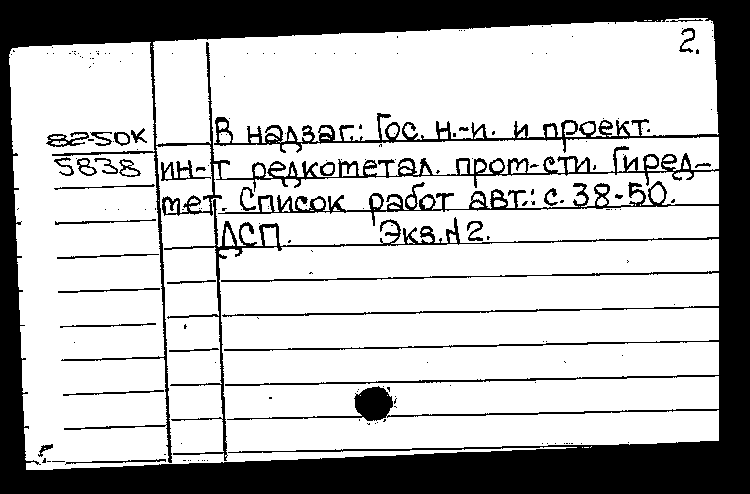 2.
82-50К В надзаг.: Гос. н.-и. и проект.
5838 ин-т редкометал. пром-сти. Гиред-
мет. Список работ авт.: с. 38-50.
ДСП. Экз.№2.